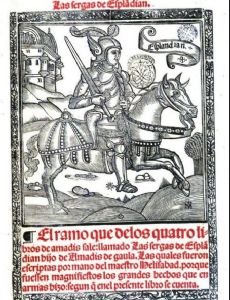 Las sergas de Esplãdian.
Esplandian.
¶ El ramo que delos quatro li
bros de amadis sale: llamado Las sergas de Esplã
dian hijo de Amadis de gaula. Las quales fueron
escriptas por mano del maestro Helisabad. porque
fuessen magnifiestos los grandes hechos que en
armas hizo: segun q̃ enel presente libro se cuenta.